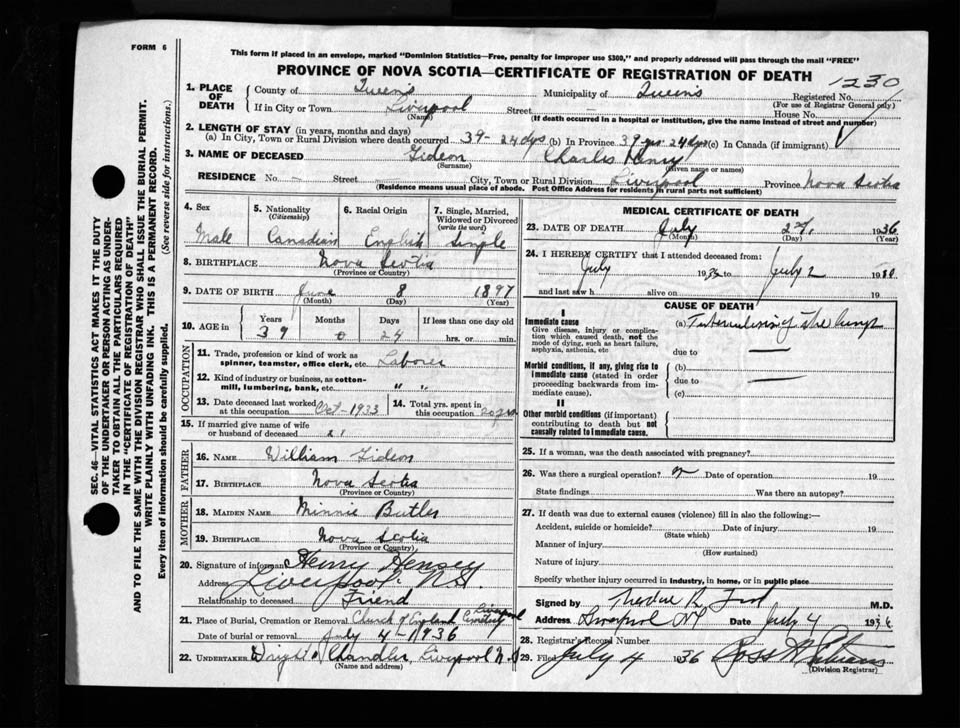 FORM 6
This form if placed in an envelope, marked "Dominion Statistics—Free, penalty for improper use $300," and properly addressed will pass through the mail "FREE"
PROVINCE OF NOVA SCOTIA—CERTIFICATE OF REGISTRATION OF DEATH
1230
1. PLACE OF DEATH
County of Queens Municipality of Queens Registered No.
(For use of Registrar General only)
If in City or Town Liverpool Street — House No.
(Name) (If death occurred in a hospital or institution, give the name instead of street and number)
2. LENGTH OF STAY (in years, months and days)
(a) In City, Town or Rural Division where death occurred 39 - 24 dys (b) In Province 39 yrs. 24 dys (c) In Canada (if immigrant)
3. NAME OF DECEASED Gideon Charles Henry
(Surname) (Given name or names)
RESIDENCE No. — Street — City, Town or Rural Division Liverpool Province Nova Scotia
(Residence means usual place of abode. Post Office Address for residents in rural parts not sufficient)
4. Sex 5. Nationality (Citizenship) 6. Racial Origin 7. Single, Married, Widowed or Divorced (write the word)
Male Canadian English Single
8. BIRTHPLACE Nova Scotia
(Province or Country)
9. DATE OF BIRTH June 8 1897
(Month) (Day) (Year)
10. AGE in Years Months Days If less than one day old
39 0 24 hrs. or min.
OCCUPATION
11. Trade, profession or kind of work as spinner, teamster, office clerk, etc. Laborer
12. Kind of industry or business, as cotton-mill, lumbering, bank, etc. " "
13. Date deceased last worked at this occupation Oct-1933 14. Total yrs. spent in this occupation
15. If married give name of wife or husband of deceased
FATHER
16. NAME William Gideon
17. BIRTHPLACE Nova Scotia
(Province or Country)
MOTHER
18. MAIDEN NAME Minnie Butler
19. BIRTHPLACE Nova Scotia
(Province or Country)
20. Signature of informant Henry Hensey
Address Liverpool. N.S.
Relationship to deceased Friend
21. Place of Burial, Cremation or Removal Church of England Cemetery Liverpool
Date of burial or removal July 4-1936
22. UNDERTAKER Wright & Chandler, Liverpool N.S
(Name and address)
MEDICAL CERTIFICATE OF DEATH
23. DATE OF DEATH July 2nd, 1936
(Month) (Day) (Year)
24. I HEREBY CERTIFY that I attended deceased from:
July 19 to July 2 19
and last saw h alive on 19
CAUSE OF DEATH
I
Immediate cause
Give disease, injury or complication which caused death, not the mode of dying, such as heart failure, asphyxia, asthenia, etc
(a) Tuberculosis of the lungs
due to —
Morbid conditions, if any, giving rise to immediate cause (stated in order proceeding backwards from immediate cause).
(b)
due to —
(c)
II
Other morbid conditions (if important) contributing to death but not causally related to immediate cause.
25. If a woman, was the death associated with pregnancy?
26. Was there a surgical operation? Date of operation 19
State findings Was there an autopsy?
27. If death was due to external causes (violence) fill in also the following:—
Accident, suicide or homicide? Date of injury 19
(State which)
Manner of injury
(How sustained)
Nature of injury
Specify whether injury occurred in industry, in home, or in public place
Signed by Theodore R. Ford M.D.
Address Liverpool NS Date July 4 1936
28. Registrar's Record Number
29. Filed July 4 1936 Ross
(Division Registrar)
SEC. 46—VITAL STATISTICS ACT MAKES IT THE DUTY
OF THE UNDERTAKER OR PERSON ACTING AS UNDER-
TAKER TO OBTAIN ALL THE PARTICULARS REQUIRED
IN THE "CERTIFICATE OF REGISTRATION OF DEATH"
AND TO FILE THE SAME WITH THE DIVISION REGISTRAR WHO SHALL ISSUE THE BURIAL PERMIT.
WRITE PLAINLY WITH UNFADING INK. THIS IS A PERMANENT RECORD.
Every item of information should be carefully supplied. (See reverse side for instructions.)